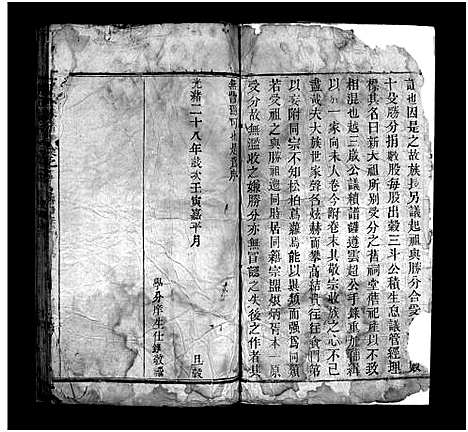 也因是之故族另議起祖與勝分合爰
十曼勝分捐穀股每股出穀三斗公積生息議管經理
標其名曰新大祖所別受分之舊祠堂舊祀產以不致
相混也越三歲公議積譜譜遵雲超公手錄重加編緝
以一家向未入卷今附卷末其敬宗收族之心不已
盡哉夫大族世家聲名炫赫而攀高結貴往往貪門第
以妄附同宗不知松柏蔦蘿烏能以異類而强爲同類
若受祖之與勝祖邊同塋居同籍宗盟煥炳胥本一原
受分故無濫收之嫌勝分亦無冒認之失後之作者其
無也是爲序
光緒二十八年歲次壬寅嘉平月 日穀
學分庠生仕敬譔